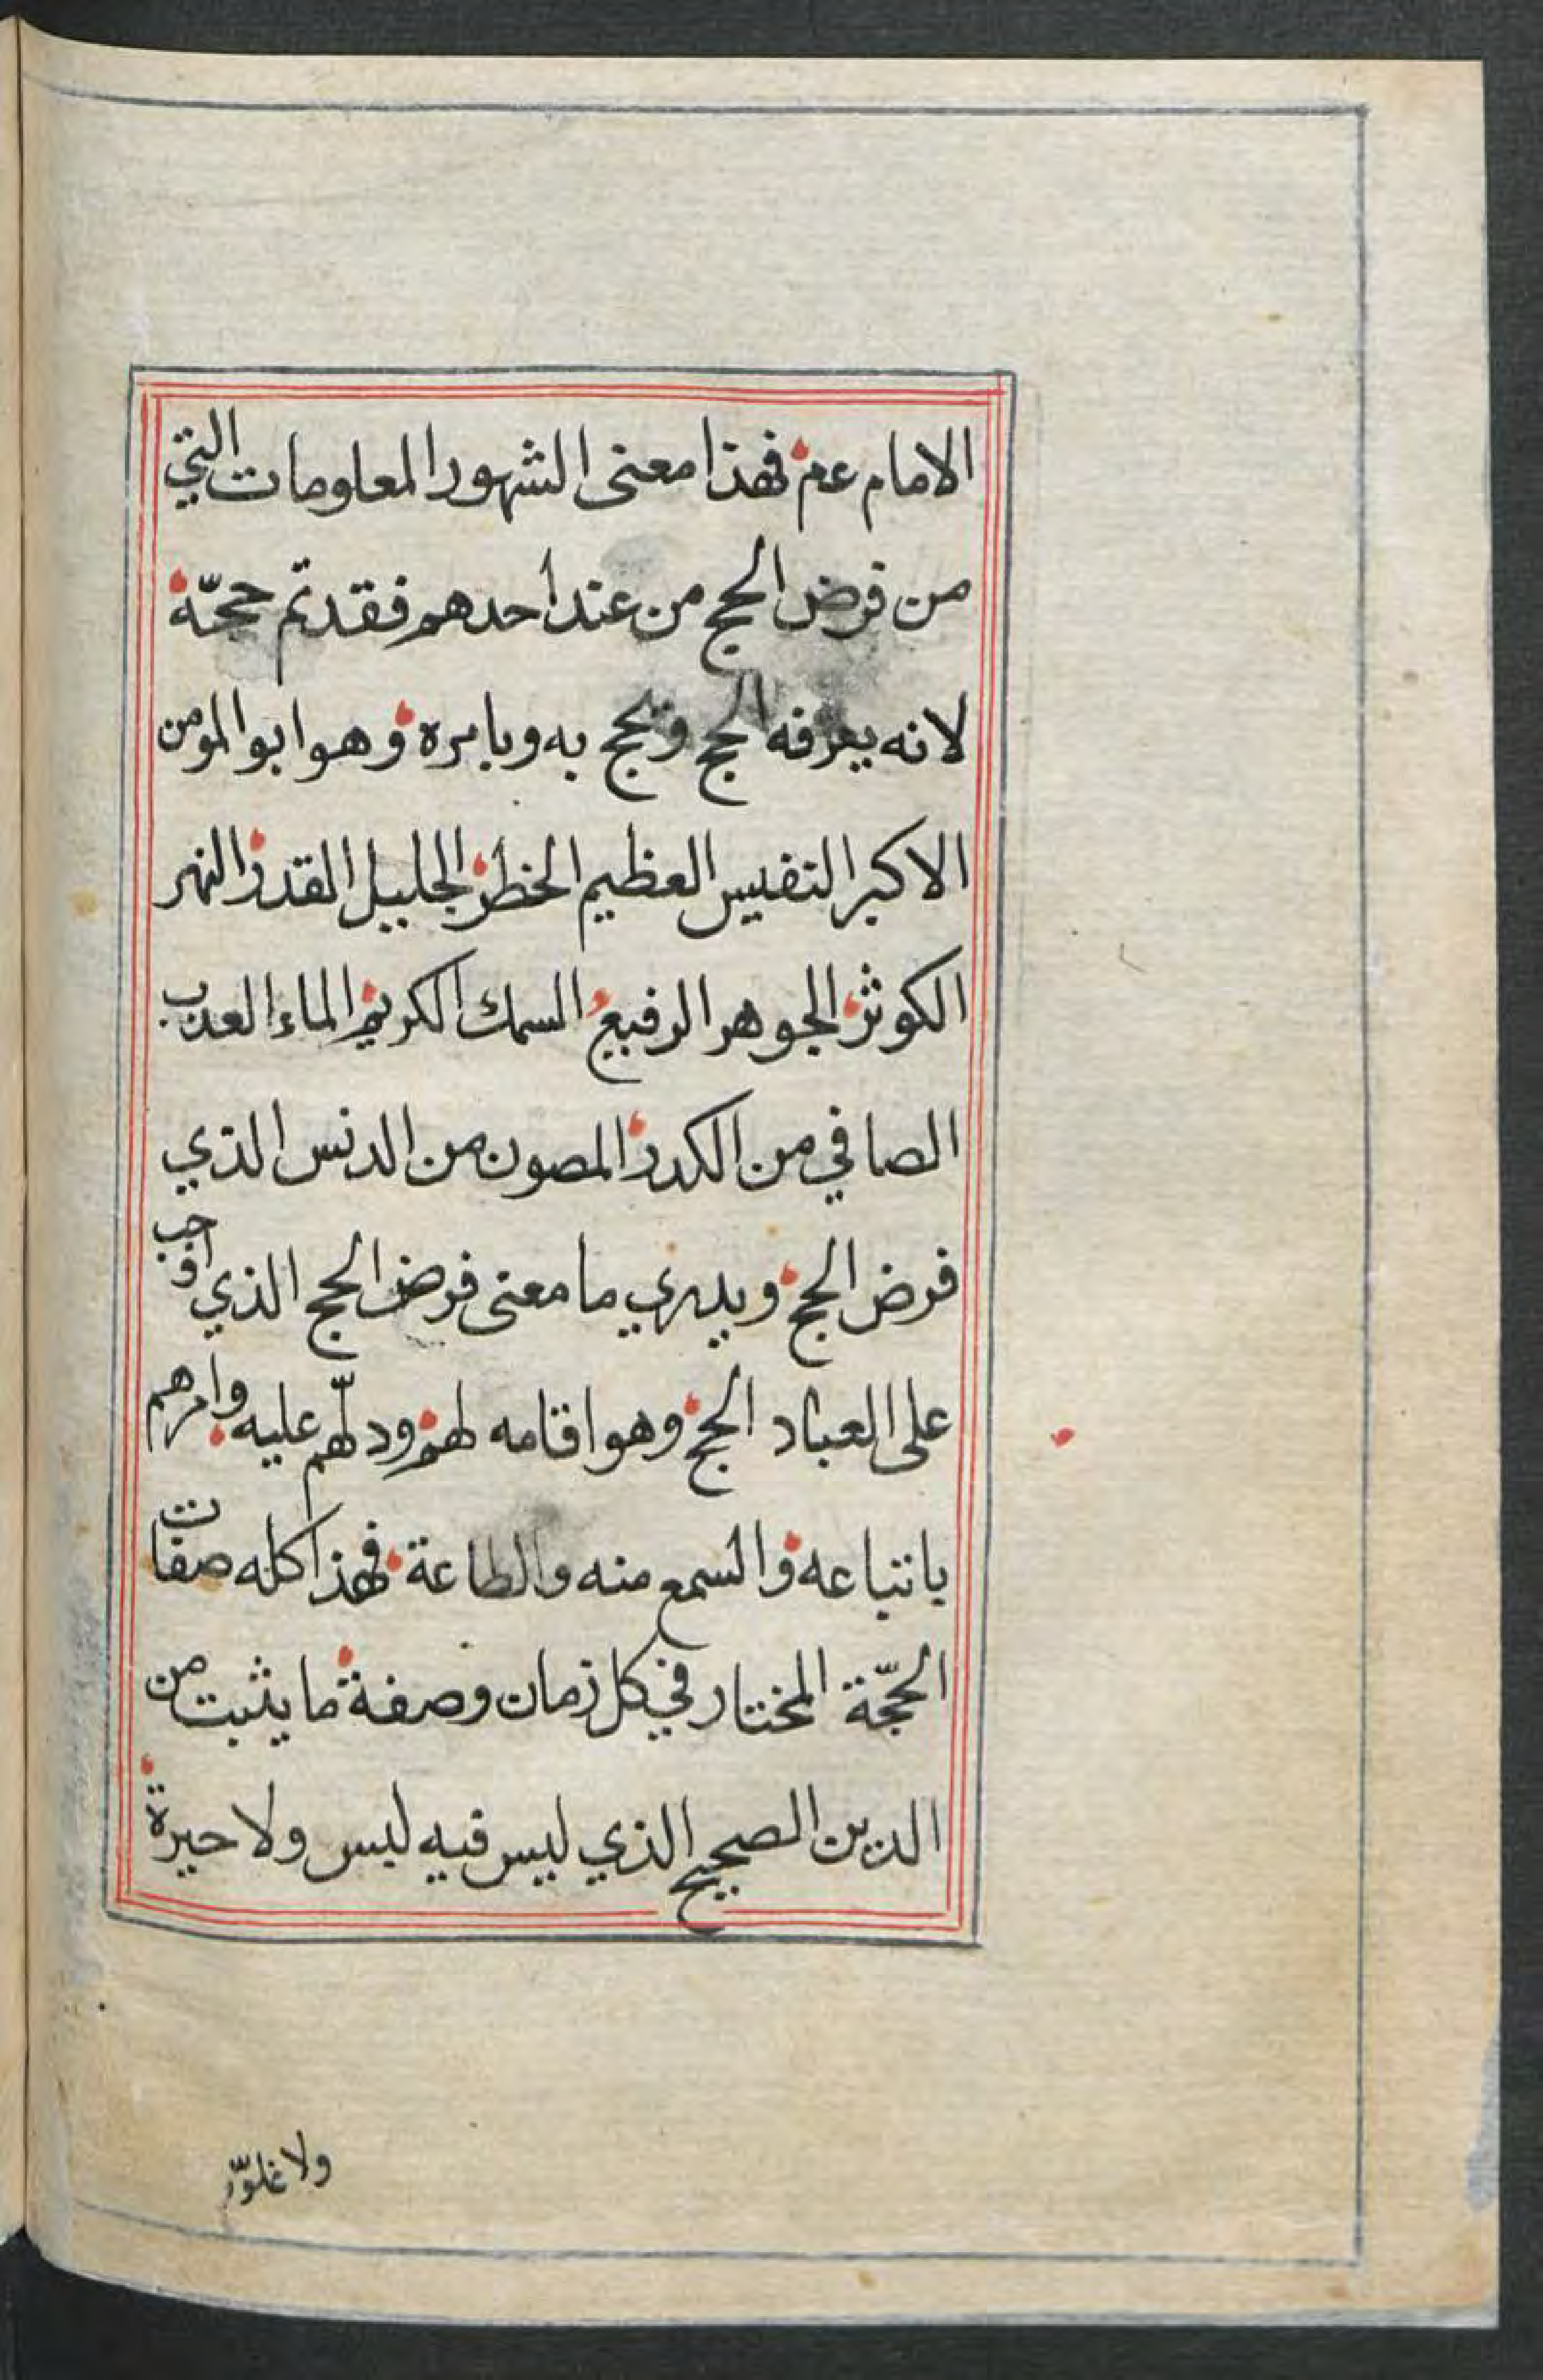 الامام عم فهذا معنى الشهور المعلومات التي
من فرض الحج من عند احدهم فقد تم حجّه
لانه يعرفه الحج ويحج به وبامره وهو ابو المومن
الاكبر النفيس العظيم الخطر الجليل القدر النهر
الكوثر الجوهر الرفيع السمك الكريم الماء العذب
الصافي من الكدر المصون من الدنس الذي
فرض الحج ويدري ما معنى فرض الحج الذي اوجب
على العباد الحج وهو اقامه لهم ودلّهم عليه وامرهم
باتباعه والسمع منه والطاعة فهذا كله صفات
الحجّة المختار في كل زمان وصفة ما يثبت من
الدين الصحيح الذي ليس فيه لبس ولا حيرة
ولا غلوّ